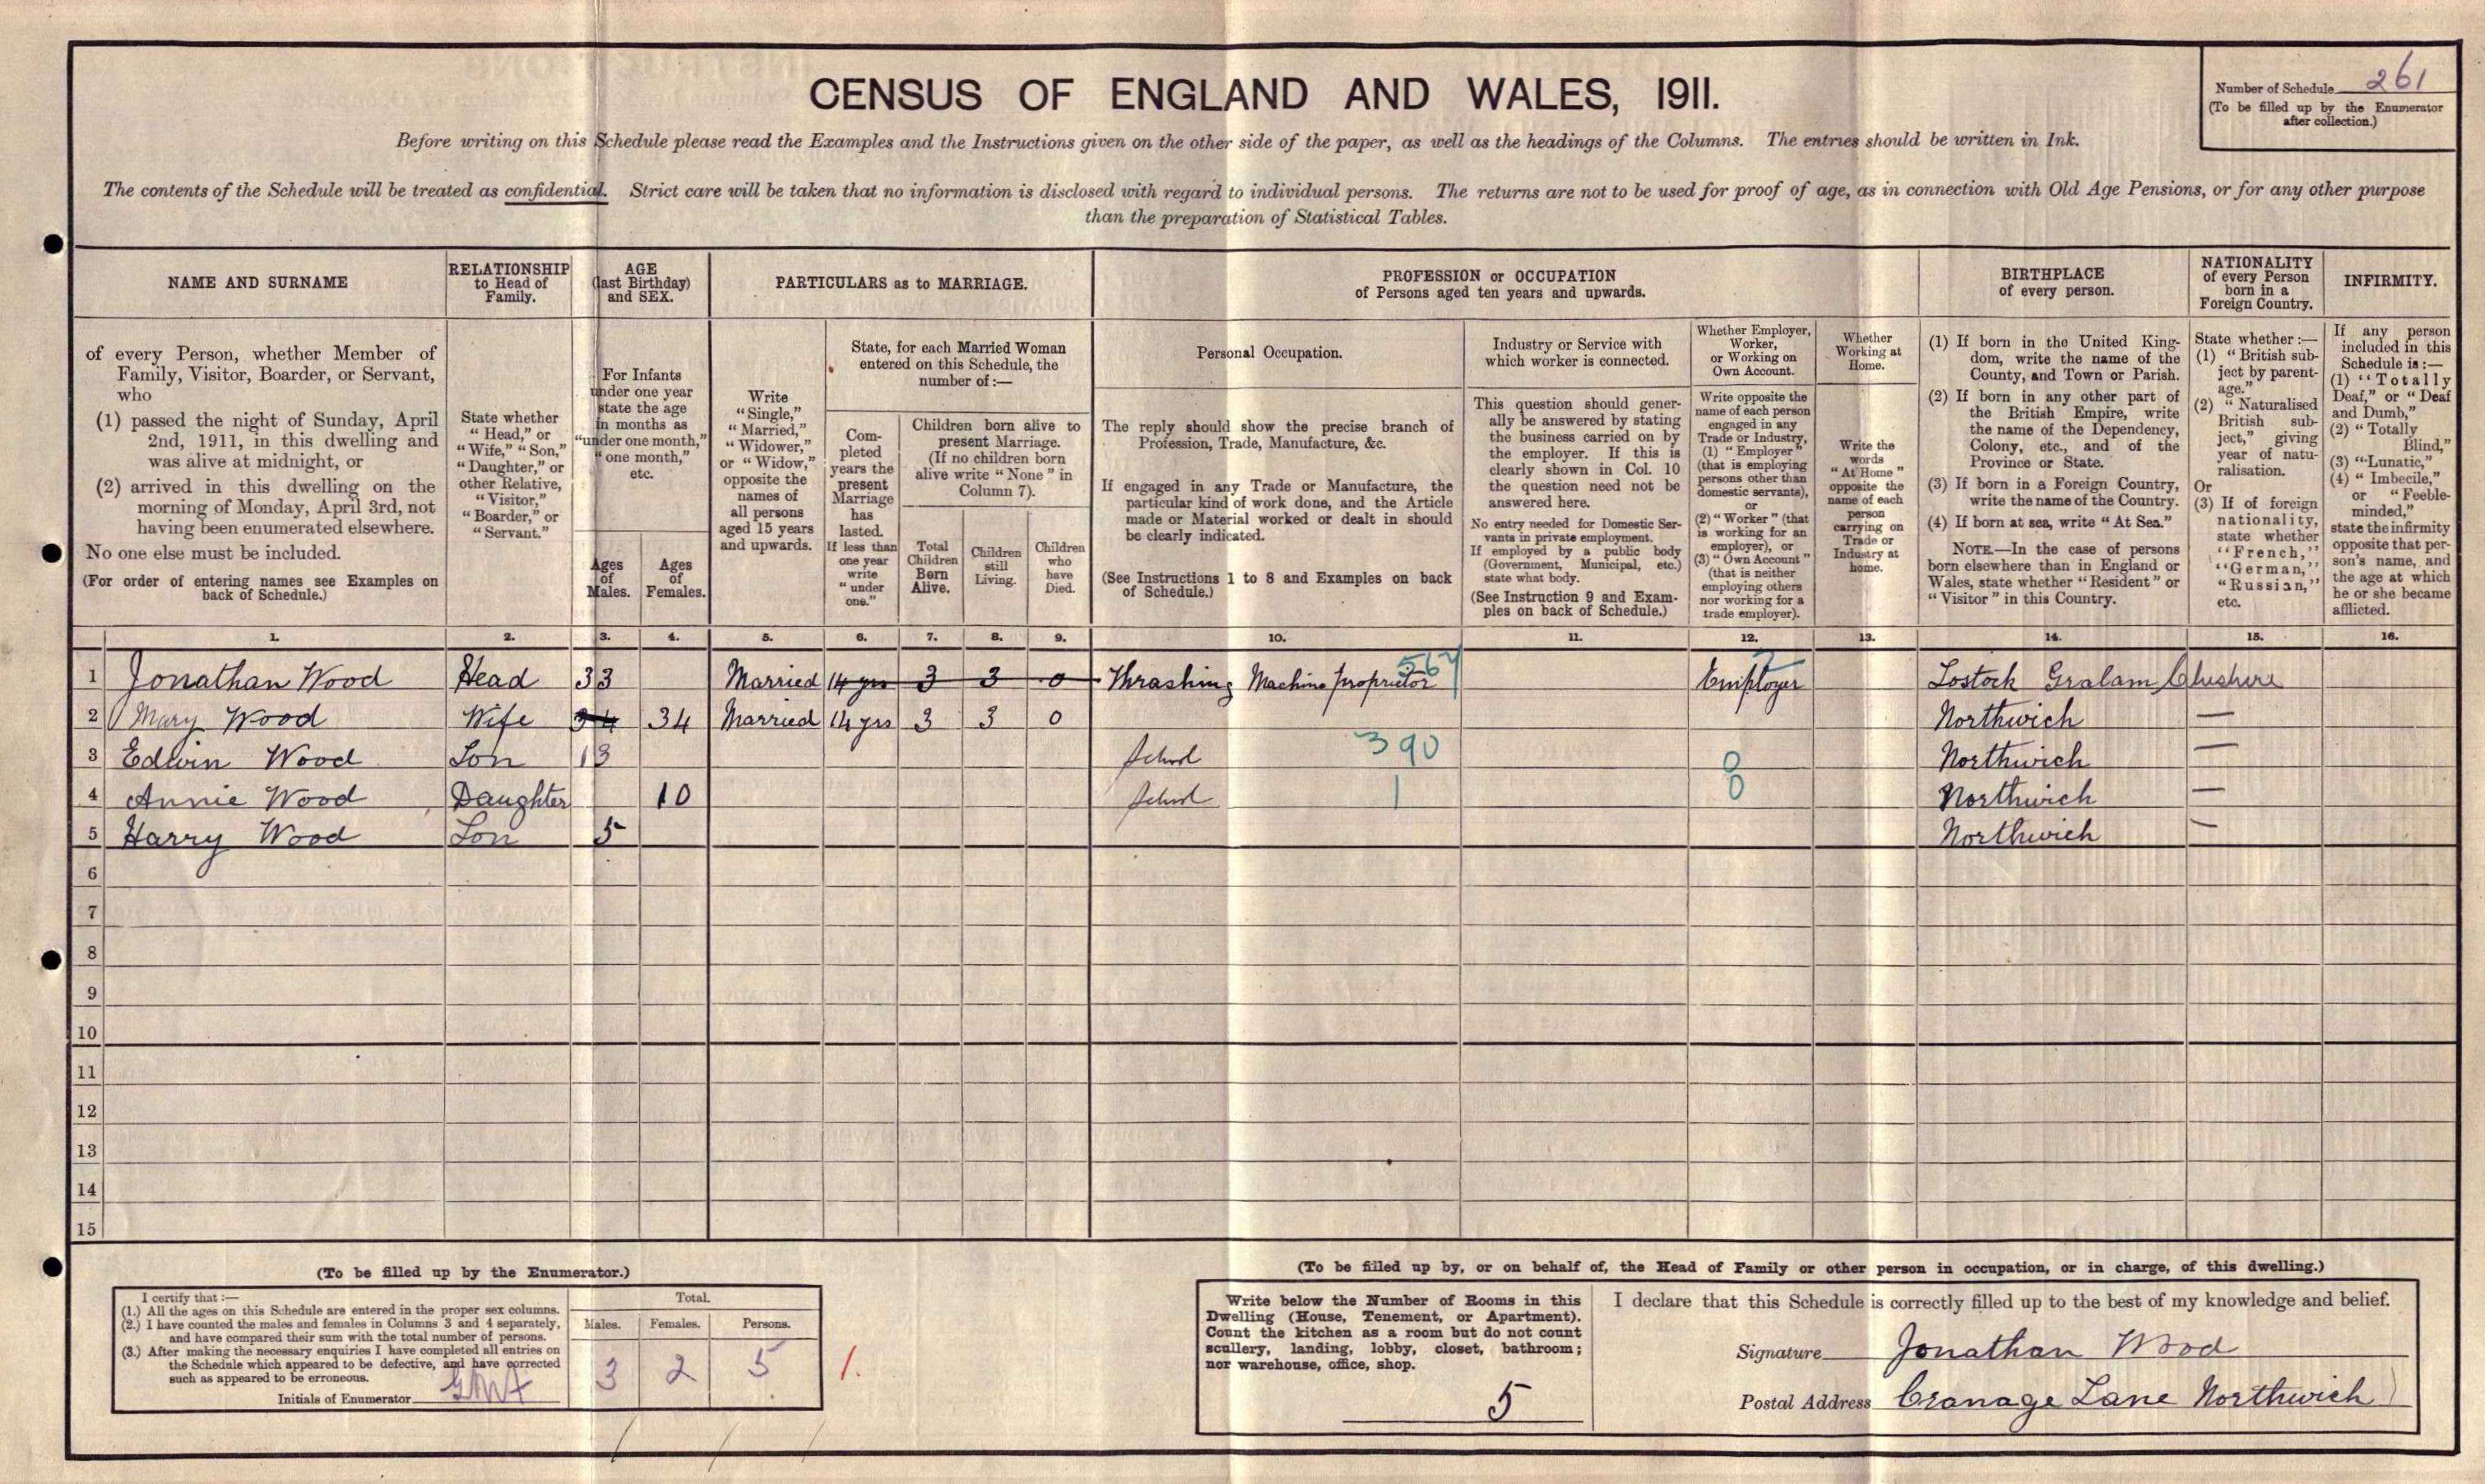 CENSUS OF ENGLAND AND WALES, 1911.
Number of Schedule 261
(To be filled up by the Enumerator
after collection.)
Before writing on this Schedule please read the Examples and the Instructions given on the other side of the paper, as well as the headings of the Columns. The entries should be written in Ink.
The contents of the Schedule will be treated as confidential. Strict care will be taken that no information is disclosed with regard to individual persons. The returns are not to be used for proof of age, as in connection with Old Age Pensions, or for any other purpose
than the preparation of Statistical Tables.
NAME AND SURNAME
of every Person, whether Member of
Family, Visitor, Boarder, or Servant,
who
(1) passed the night of Sunday, April
2nd, 1911, in this dwelling and
was alive at midnight, or
(2) arrived in this dwelling on the
morning of Monday, April 3rd, not
having been enumerated elsewhere.
No one else must be included.
(For order of entering names see Examples on
back of Schedule.)
RELATIONSHIP
to Head of
Family.
State whether
"Head," or
"Wife," "Son,"
"Daughter," or
other Relative,
"Visitor,"
"Boarder," or
"Servant."
AGE
(last Birthday)
and SEX.
For Infants
under one year
state the age
in months as
"under one month,"
"one month,"
etc.
Ages
of
Males.
Ages
of
Females.
PARTICULARS as to MARRIAGE.
Write
"Single,"
"Married,"
"Widower,"
or "Widow,"
opposite the
names of
all persons
aged 15 years
and upwards.
State, for each Married Woman
entered on this Schedule, the
number of:—
Com-
pleted
years the
present
Marriage
has
lasted.
If less than
one year
write
"under
one."
Children born alive to
present Marriage.
(If no children born
alive write "None" in
Column 7).
Total
Children
Born
Alive.
Children
still
Living.
Children
who
have
Died.
PROFESSION or OCCUPATION
of Persons aged ten years and upwards.
Personal Occupation.
The reply should show the precise branch of
Profession, Trade, Manufacture, &c.
If engaged in any Trade or Manufacture, the
particular kind of work done, and the Article
made or Material worked or dealt in should
be clearly indicated.
(See Instructions 1 to 8 and Examples on back
of Schedule.)
Industry or Service with
which worker is connected.
This question should gener-
ally be answered by stating
the business carried on by
the employer. If this is
clearly shown in Col. 10
the question need not be
answered here.
No entry needed for Domestic Ser-
vants in private employment.
If employed by a public body
(Government, Municipal, etc.)
state what body.
(See Instruction 9 and Exam-
ples on back of Schedule.)
Whether Employer,
Worker,
or Working on
Own Account.
Write opposite the
name of each person
engaged in any
Trade or Industry,
(1) "Employer"
(that is employing
persons other than
domestic servants),
or
(2) "Worker" (that
is working for an
employer), or
(3) "Own Account"
(that is neither
employing others
nor working for a
trade employer).
Whether
Working at
Home.
Write the
words
"At Home"
opposite the
name of each
person
carrying on
Trade or
Industry at
home.
BIRTHPLACE
of every person.
(1) If born in the United King-
dom, write the name of the
County, and Town or Parish.
(2) If born in any other part of
the British Empire, write
the name of the Dependency,
Colony, etc., and of the
Province or State.
(3) If born in a Foreign Country,
write the name of the Country.
(4) If born at sea, write "At Sea."
NOTE.—In the case of persons
born elsewhere than in England or
Wales, state whether "Resident" or
"Visitor" in this Country.
NATIONALITY
of every Person
born in a
Foreign Country.
State whether:—
(1) "British sub-
ject by parent-
age,"
(2) "Naturalised
British sub-
ject," giving
year of natu-
ralisation.
Or
(3) If of foreign
nationality,
state whether
"French,"
"German,"
"Russian,"
etc.
INFIRMITY.
If any person
included in this
Schedule is:—
(1) "Totally
Deaf," or "Deaf
and Dumb,"
(2) "Totally
Blind,"
(3) "Lunatic,"
(4) "Imbecile,"
or "Feeble-
minded,"
state the infirmity
opposite that per-
son's name, and
the age at which
he or she became
afflicted.
1. 2. 3. 4. 5. 6. 7. 8. 9. 10. 11. 12. 13. 14. 15. 16.
1 Jonathan Wood Head 33 Married 14 yrs 3 3 0 Thrashing Machine proprietor 567 Employer Lostock Gralam Cheshire
2 Mary Wood Wife 34 34 Married 14 yrs 3 3 0 Northwich —
3 Edwin Wood Son 13 School 390 0 Northwich —
4 Annie Wood Daughter 10 School 1 0 Northwich —
5 Harry Wood Son 5 Northwich —
6
7
8
9
10
11
12
13
14
15
(To be filled up by the Enumerator.)
I certify that:—
(1.) All the ages on this Schedule are entered in the proper sex columns.
(2.) I have counted the males and females in Columns 3 and 4 separately,
and have compared their sum with the total number of persons.
(3.) After making the necessary enquiries I have completed all entries on
the Schedule which appeared to be defective, and have corrected
such as appeared to be erroneous.
Initials of Enumerator
Total.
Males. Females. Persons.
3 2 5 1.
(To be filled up by, or on behalf of, the Head of Family or other person in occupation, or in charge, of this dwelling.)
Write below the Number of Rooms in this
Dwelling (House, Tenement, or Apartment).
Count the kitchen as a room but do not count
scullery, landing, lobby, closet, bathroom;
nor warehouse, office, shop.
5
I declare that this Schedule is correctly filled up to the best of my knowledge and belief.
Signature Jonathan Wood
Postal Address Cranage Lane Northwich